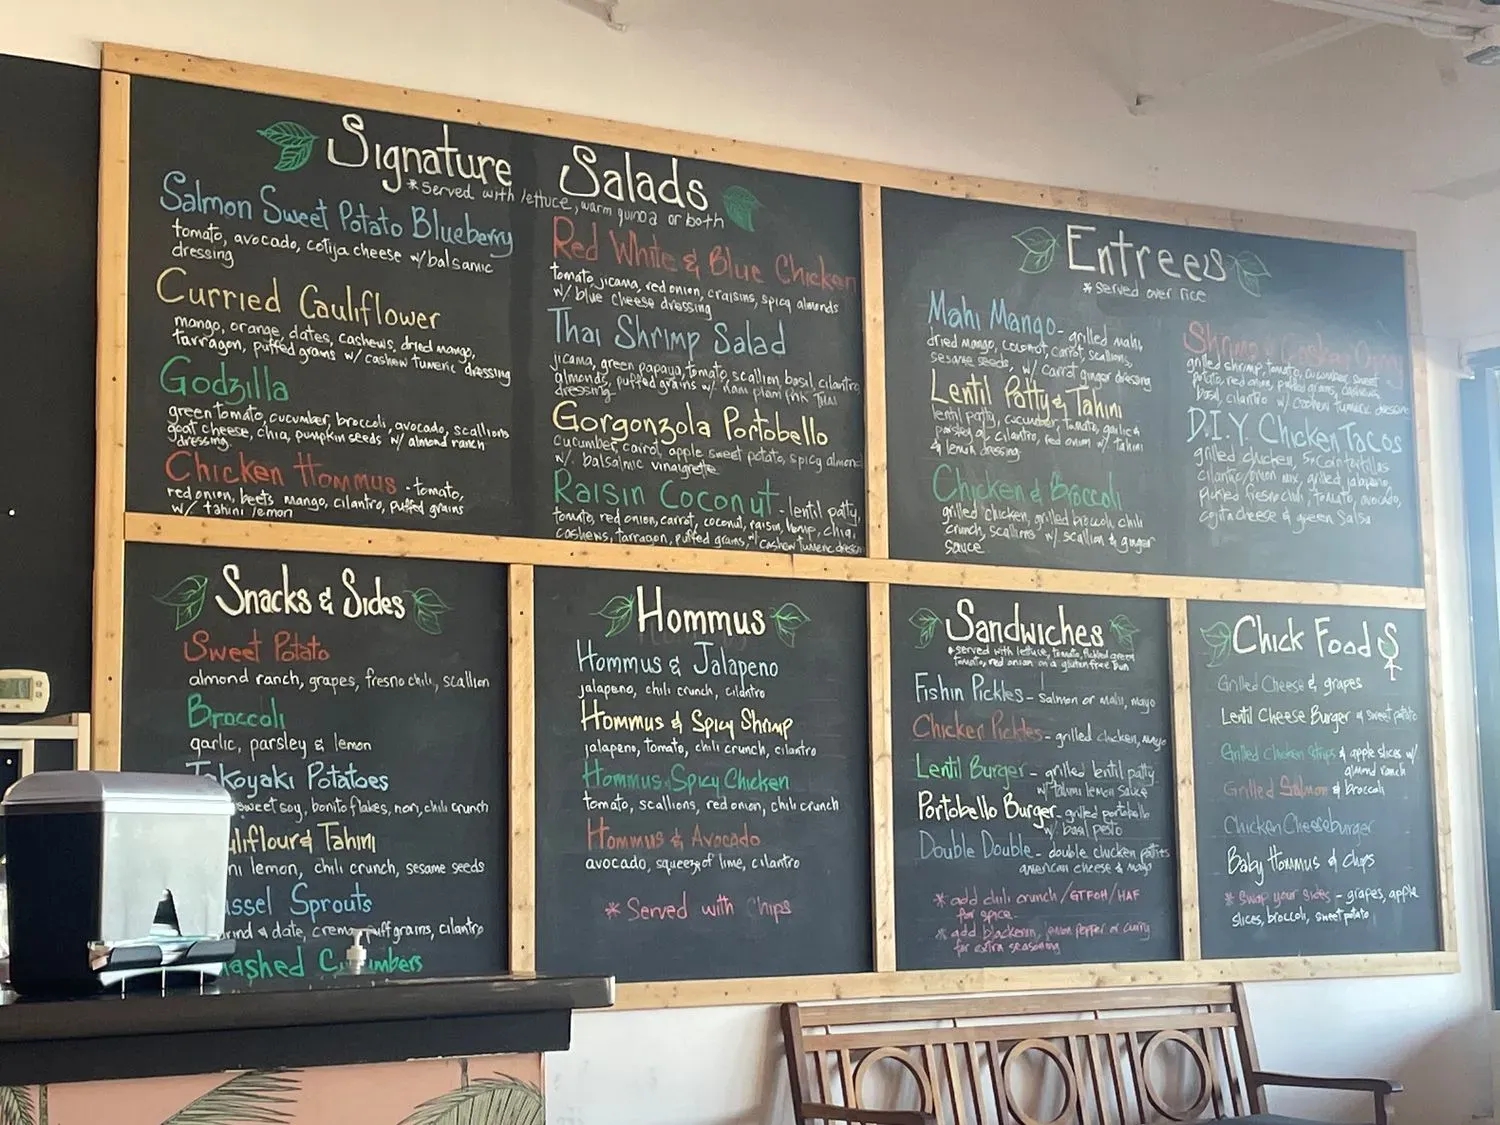 Signature Salads
*served with lettuce, warm quinoa or both
Salmon Sweet Potato Blueberry
tomato, avocado, cotija cheese w/balsamic
dressing
Curried Cauliflower
mango, orange, dates, cashews, dried mango,
tarragon, puffed grains w/ cashew tumeric dressing
Godzilla
green tomato, cucumber, broccoli, avocado, scallions
goat cheese, chia, pumpkin seeds w/ almond ranch
dressing
Chicken Hommus - tomato,
red onion, beets mango, cilantro, puffed grains
w/ tahini lemon
Red White & Blue Chicken
tomato, jicama, red onion, craisins, spicy almonds
w/ blue cheese dressing
Thai Shrimp Salad
jicama, green papaya, tomato, scallion, basil, cilantro
almonds, puffed grains w/ Thai
dressing
Gorgonzola Portobello
cucumber, carrot, apple sweet potato, spicy almond
w/ balsalmic vinaigrette
Raisin Coconut - lentil patty,
tomato, red onion, carrot, coconut, raisin, hemp, chia,
cashews, tarragon, puffed grains, w/ cashew tumeric dressing
Entrees
*served over rice
Mahi Mango - grilled mahi,
dried mango, coconut, carrot, scallions,
sesame seeds, w/ carrot ginger dressing
Lentil Patty & Tahini
lentil patty, cucumber, tomato, garlic &
parsley oil, cilantro, red onion w/ tahini
& lemon dressing
Chicken & Broccoli
grilled chicken, grilled broccoli chili
crunch, scallions w/ scallion & ginger
sauce
Shrimp
grilled shrimp, tomato, cucumber, sweet
potato, red onion, puffed grains, cashews,
basil, cilantro w/ cashew tumeric dressing
D.I.Y. Chicken Tacos
grilled chicken, 5x corn tortillas
cilantro/onion mix, grilled jalapeno,
pickled fresno chili, tomato, avocado,
cojita cheese & green salsa
Snacks & Sides
Sweet Potato
almond ranch, grapes, fresno chili, scallion
Broccoli
garlic, parsley & lemon
Takoyaki Potatoes
sweet soy, bonito flakes, nori, chili crunch
uliflour & Tahini
ni lemon, chili crunch, sesame seeds
ussel Sprouts
& date, crema, puff grains, cilantro
ashed Cucumbers
Hommus
Hommus & Jalapeno
jalapeno, chili crunch, cilantro
Hommus & Spicy Shrimp
jalapeno, tomato, chili crunch, cilantro
Hommus, Spicy Chicken
tomato, scallions, red onion, chili crunch
Hommus & Avocado
avocado, squeeze of lime, cilantro
* Served with Chips
Sandwiches
*served with lettuce, tomato, pickled green
tomato, red onion on a gluten free bun
Fishin Pickles - salmon or mahi, mayo
Chicken Pickles - grilled chicken, mayo
Lentil Burger - grilled lentil patty
w/ tahini lemon sauce
Portobello Burger - grilled portobello
w/ basil pesto
Double Double - double chicken patties
american cheese & mayo
* add chili crunch/GTFOH/HAF
for spice.
* add blackened, lemon pepper or curry
for extra seasoning
Chick Food
Grilled Cheese & grapes
Lentil Cheese Burger & sweet potato
Grilled Chicken Strips & apple slices w/
almond ranch
Grilled Salmon & broccoli
Chicken Cheeseburger
Baby Hommus & chips
* Swap your sides - grapes, apple
slices, broccoli, sweet potato